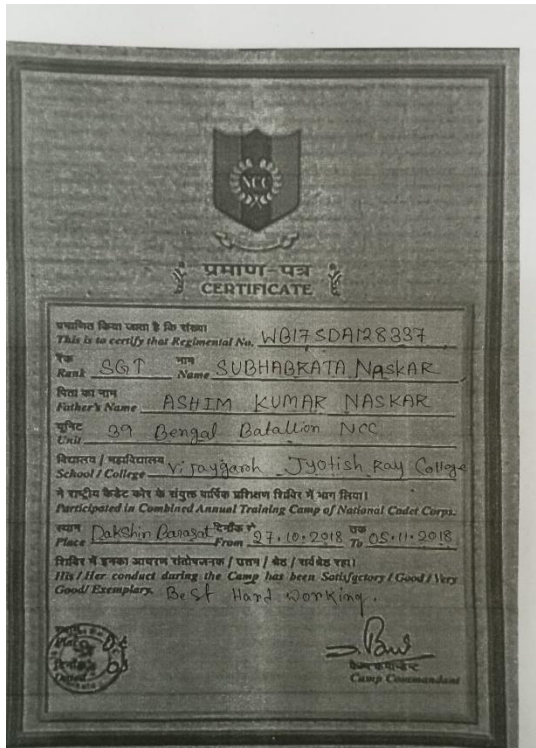 NCC
प्रमाण-पत्र
CERTIFICATE
प्रमाणित किया जाता है कि संख्या
This is to certify that Regimental No. WB17SDA128337
रैंक नाम
Rank SGT Name SUBHABRATA NASKAR
पिता का नाम
Father's Name ASHIM KUMAR NASKAR
यूनिट
Unit 39 Bengal Batallion NCC
विद्यालय / महाविद्यालय
School / College Vijaygarh Jyotish Ray College
ने राष्ट्रीय कैडेट कोर के संयुक्त वार्षिक प्रशिक्षण शिविर में भाग लिया।
Participated in Combined Annual Training Camp of National Cadet Corps.
स्थान दिनाँक से तक
Place Dakshin Barasat From 27.10.2018 To 05.11.2018
शिविर में इनका आचरण संतोषजनक / उत्तम / श्रेष्ठ / सर्वश्रेष्ठ रहा।
His / Her conduct during the Camp has been Satisfactory / Good / Very
Good / Exemplary. Best Hard working.
कैम्प कमान्डेन्ट
Camp Commandant